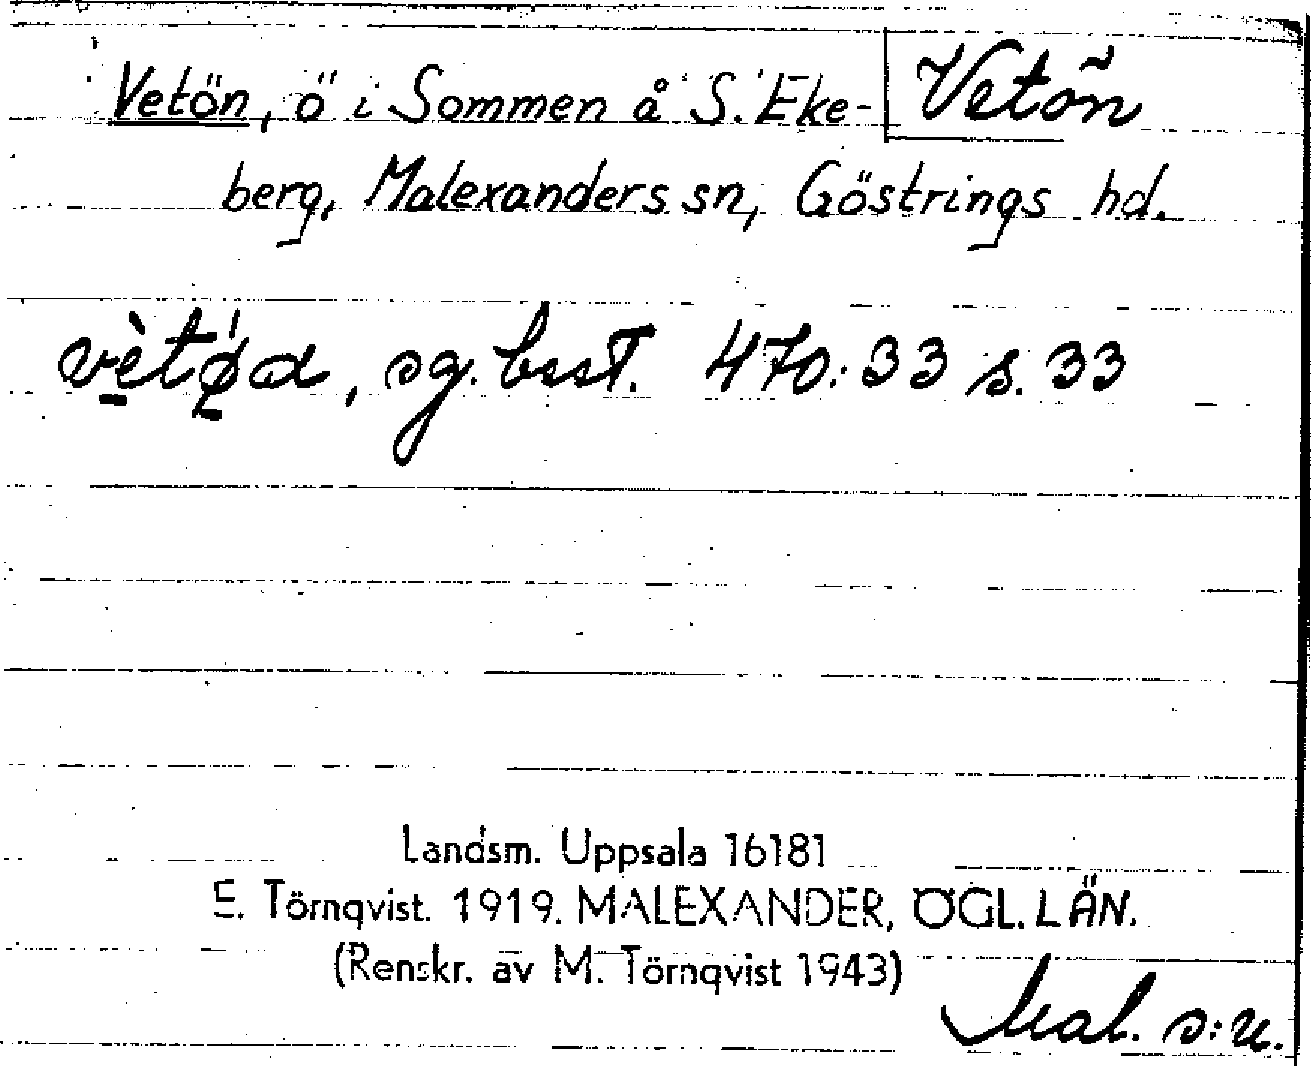 Vetön, ö i Sommen å S. Eke- Vetön
berg, Malexanders sn, Göstrings hd.
vètø̀a, sg. bsst. 470:33 s. 33
Landsm. Uppsala 16181
E. Törnqvist. 1919. MALEXANDER, ÖGL. LÄN.
(Renskr. av M. Törnqvist 1943)
Mal. s:n.